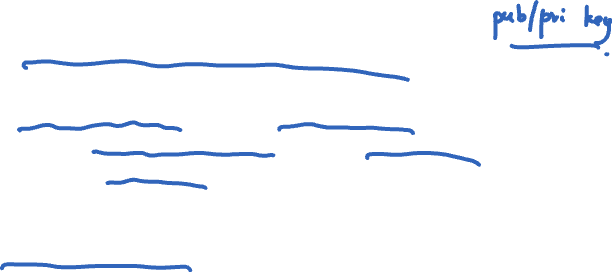 pub/pri key